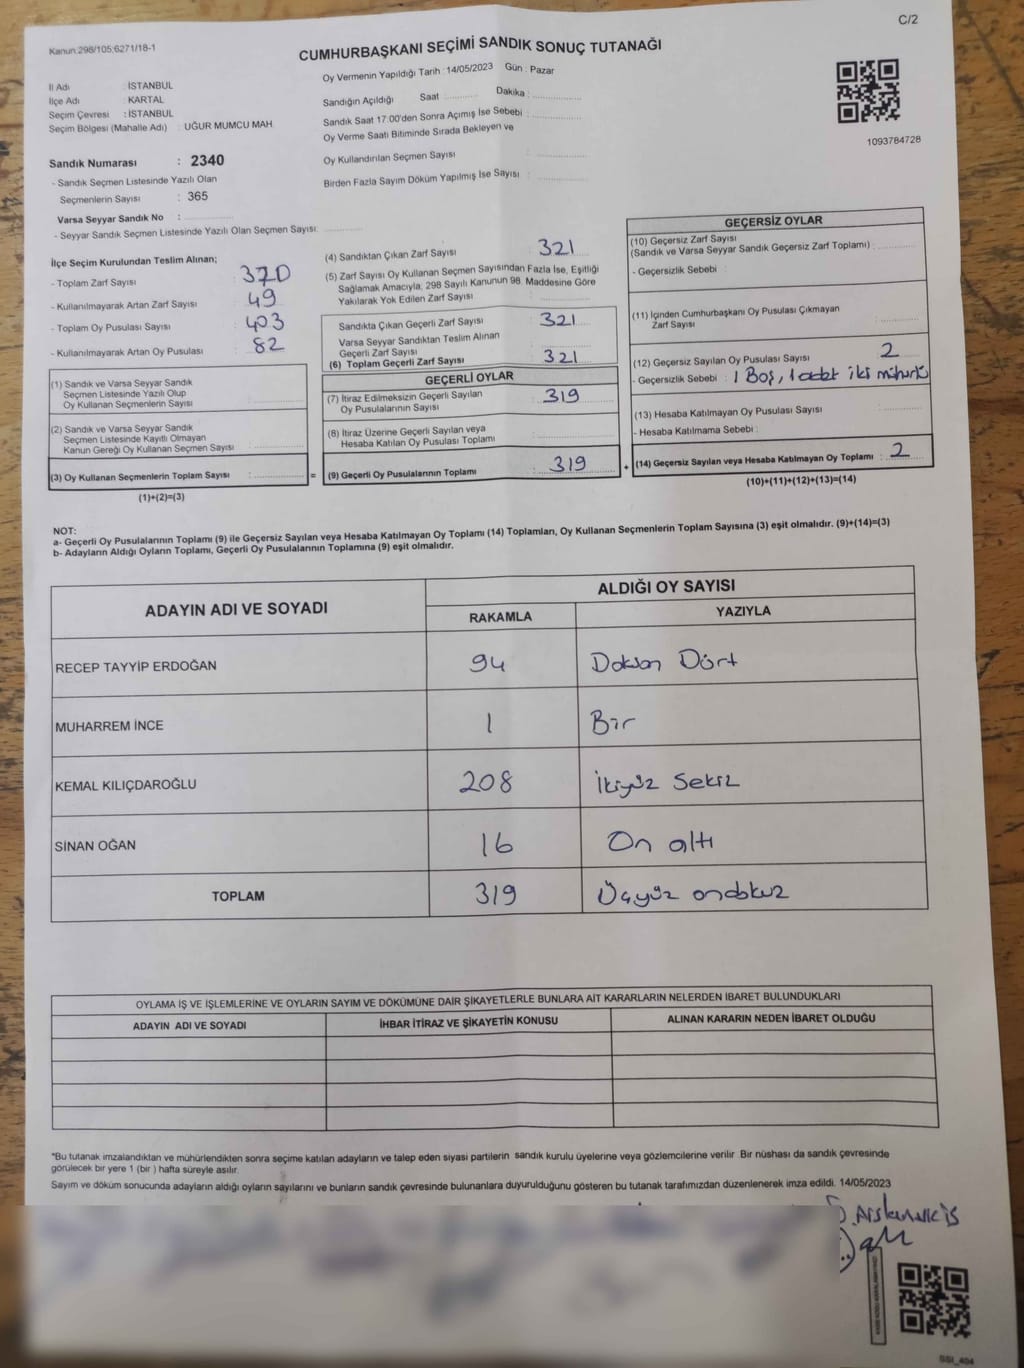 C/2
Kanun 298/105;6271/18-1
CUMHURBAŞKANI SEÇİMİ SANDIK SONUÇ TUTANAĞI
İl Adı : İSTANBUL
İlçe Adı : KARTAL
Seçim Çevresi : İSTANBUL
Seçim Bölgesi (Mahalle Adı) : UĞUR MUMCU MAH
Sandık Numarası : 2340
- Sandık Seçmen Listesinde Yazılı Olan
Seçmenlerin Sayısı : 365
Varsa Seyyar Sandık No :
- Seyyar Sandık Seçmen Listesinde Yazılı Olan Seçmen Sayısı:
Oy Vermenin Yapıldığı Tarih : 14/05/2023 Gün : Pazar
Sandığın Açıldığı Saat Dakika :
Sandık Saat 17:00'den Sonra Açımış İse Sebebi :
Oy Verme Saati Bitiminde Sırada Bekleyen ve
Oy Kullandırılan Seçmen Sayısı :
Birden Fazla Sayım Döküm Yapılmış İse Sayısı :
1093784728
İlçe Seçim Kurulundan Teslim Alınan;
- Toplam Zarf Sayısı : 370
- Kullanılmayarak Artan Zarf Sayısı : 49
- Toplam Oy Pusulası Sayısı : 403
- Kullanılmayarak Artan Oy Pusulası : 82
(1) Sandık ve Varsa Seyyar Sandık
Seçmen Listesinde Yazılı Olup
Oy Kullanan Seçmenlerin Sayısı :
(2) Sandık ve Varsa Seyyar Sandık
Seçmen Listesinde Kayıtlı Olmayan
Kanun Gereği Oy Kullanan Seçmen Sayısı :
(3) Oy Kullanan Seçmenlerin Toplam Sayısı : =
(1)+(2)=(3)
(4) Sandıktan Çıkan Zarf Sayısı : 321
(5) Zarf Sayısı Oy Kullanan Seçmen Sayısından Fazla İse, Eşitliği
Sağlamak Amacıyla, 298 Sayılı Kanunun 98. Maddesine Göre
Yakılarak Yok Edilen Zarf Sayısı :
Sandıkta Çıkan Geçerli Zarf Sayısı : 321
Varsa Seyyar Sandıktan Teslim Alınan
Geçerli Zarf Sayısı :
(6) Toplam Geçerli Zarf Sayısı : 321
GEÇERLİ OYLAR
(7) İtiraz Edilmeksizin Geçerli Sayılan
Oy Pusulalarının Sayısı : 319
(8) İtiraz Üzerine Geçerli Sayılan veya
Hesaba Katılan Oy Pusulası Toplamı :
(9) Geçerli Oy Pusulalarının Toplamı : 319 +
GEÇERSİZ OYLAR
(10) Geçersiz Zarf Sayısı
(Sandık ve Varsa Seyyar Sandık Geçersiz Zarf Toplamı) :
- Geçersizlik Sebebi :
(11) İçinden Cumhurbaşkanı Oy Pusulası Çıkmayan
Zarf Sayısı :
(12) Geçersiz Sayılan Oy Pusulası Sayısı : 2
- Geçersizlik Sebebi : 1 Boş, 1 adet iki mühürlü
(13) Hesaba Katılmayan Oy Pusulası Sayısı :
- Hesaba Katılmama Sebebi :
(14) Geçersiz Sayılan veya Hesaba Katılmayan Oy Toplamı : 2
(10)+(11)+(12)+(13)=(14)
NOT:
a- Geçerli Oy Pusulalarının Toplamı (9) ile Geçersiz Sayılan veya Hesaba Katılmayan Oy Toplamı (14) Toplamları, Oy Kullanan Seçmenlerin Toplam Sayısına (3) eşit olmalıdır. (9)+(14)=(3)
b- Adayların Aldığı Oyların Toplamı, Geçerli Oy Pusulalarının Toplamına (9) eşit olmalıdır.
ADAYIN ADI VE SOYADI ALDIĞI OY SAYISI
RAKAMLA YAZIYLA
RECEP TAYYİP ERDOĞAN 94 Doksan Dört
MUHARREM İNCE 1 Bir
KEMAL KILIÇDAROĞLU 208 İkiyüz Sekiz
SİNAN OĞAN 16 On altı
TOPLAM 319 Üçyüz ondokuz
OYLAMA İŞ VE İŞLEMLERİNE VE OYLARIN SAYIM VE DÖKÜMÜNE DAİR ŞİKAYETLERLE BUNLARA AİT KARARLARIN NELERDEN İBARET BULUNDUKLARI
ADAYIN ADI VE SOYADI İHBAR İTİRAZ VE ŞİKAYETİN KONUSU ALINAN KARARIN NEDEN İBARET OLDUĞU
*Bu tutanak imzalandıktan ve mühürlendikten sonra seçime katılan adayların ve talep eden siyasi partilerin sandık kurulu üyelerine veya gözlemcilerine verilir. Bir nüshası da sandık çevresinde
görülecek bir yere 1 (bir ) hafta süreyle asılır.
Sayım ve döküm sonucunda adayların aldığı oyların sayılarını ve bunların sandık çevresinde bulunanlara duyurulduğunu gösteren bu tutanak tarafımızdan düzenlenerek imza edildi. 14/05/2023